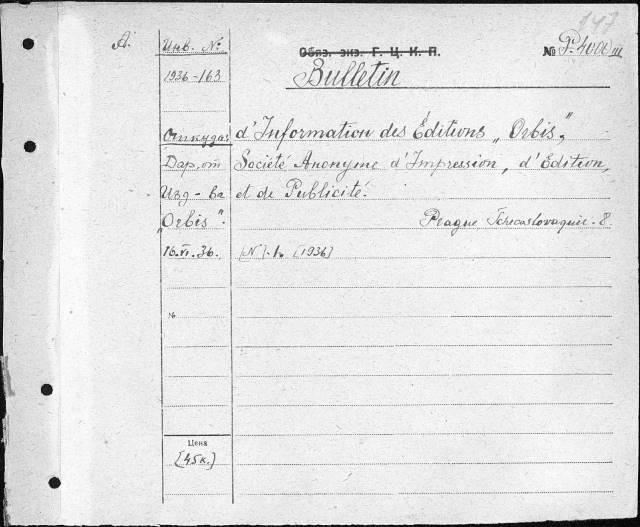 147
А.
Инв. №
Обяз. экз. Г. Ц. К. П.
№ P. 4000 III
1936-163
Bulletin
Откуда
d'Information des Éditions „Orbis,"
Дар. от
Société Anonyme d'Impression, d'Edition,
Изд-ва
et de Publicité.
"Orbis".
Prague Tchécoslovaquie. 8.
16.VI.36.
[N]. 1. [1936]
№
Цена
[45к.]